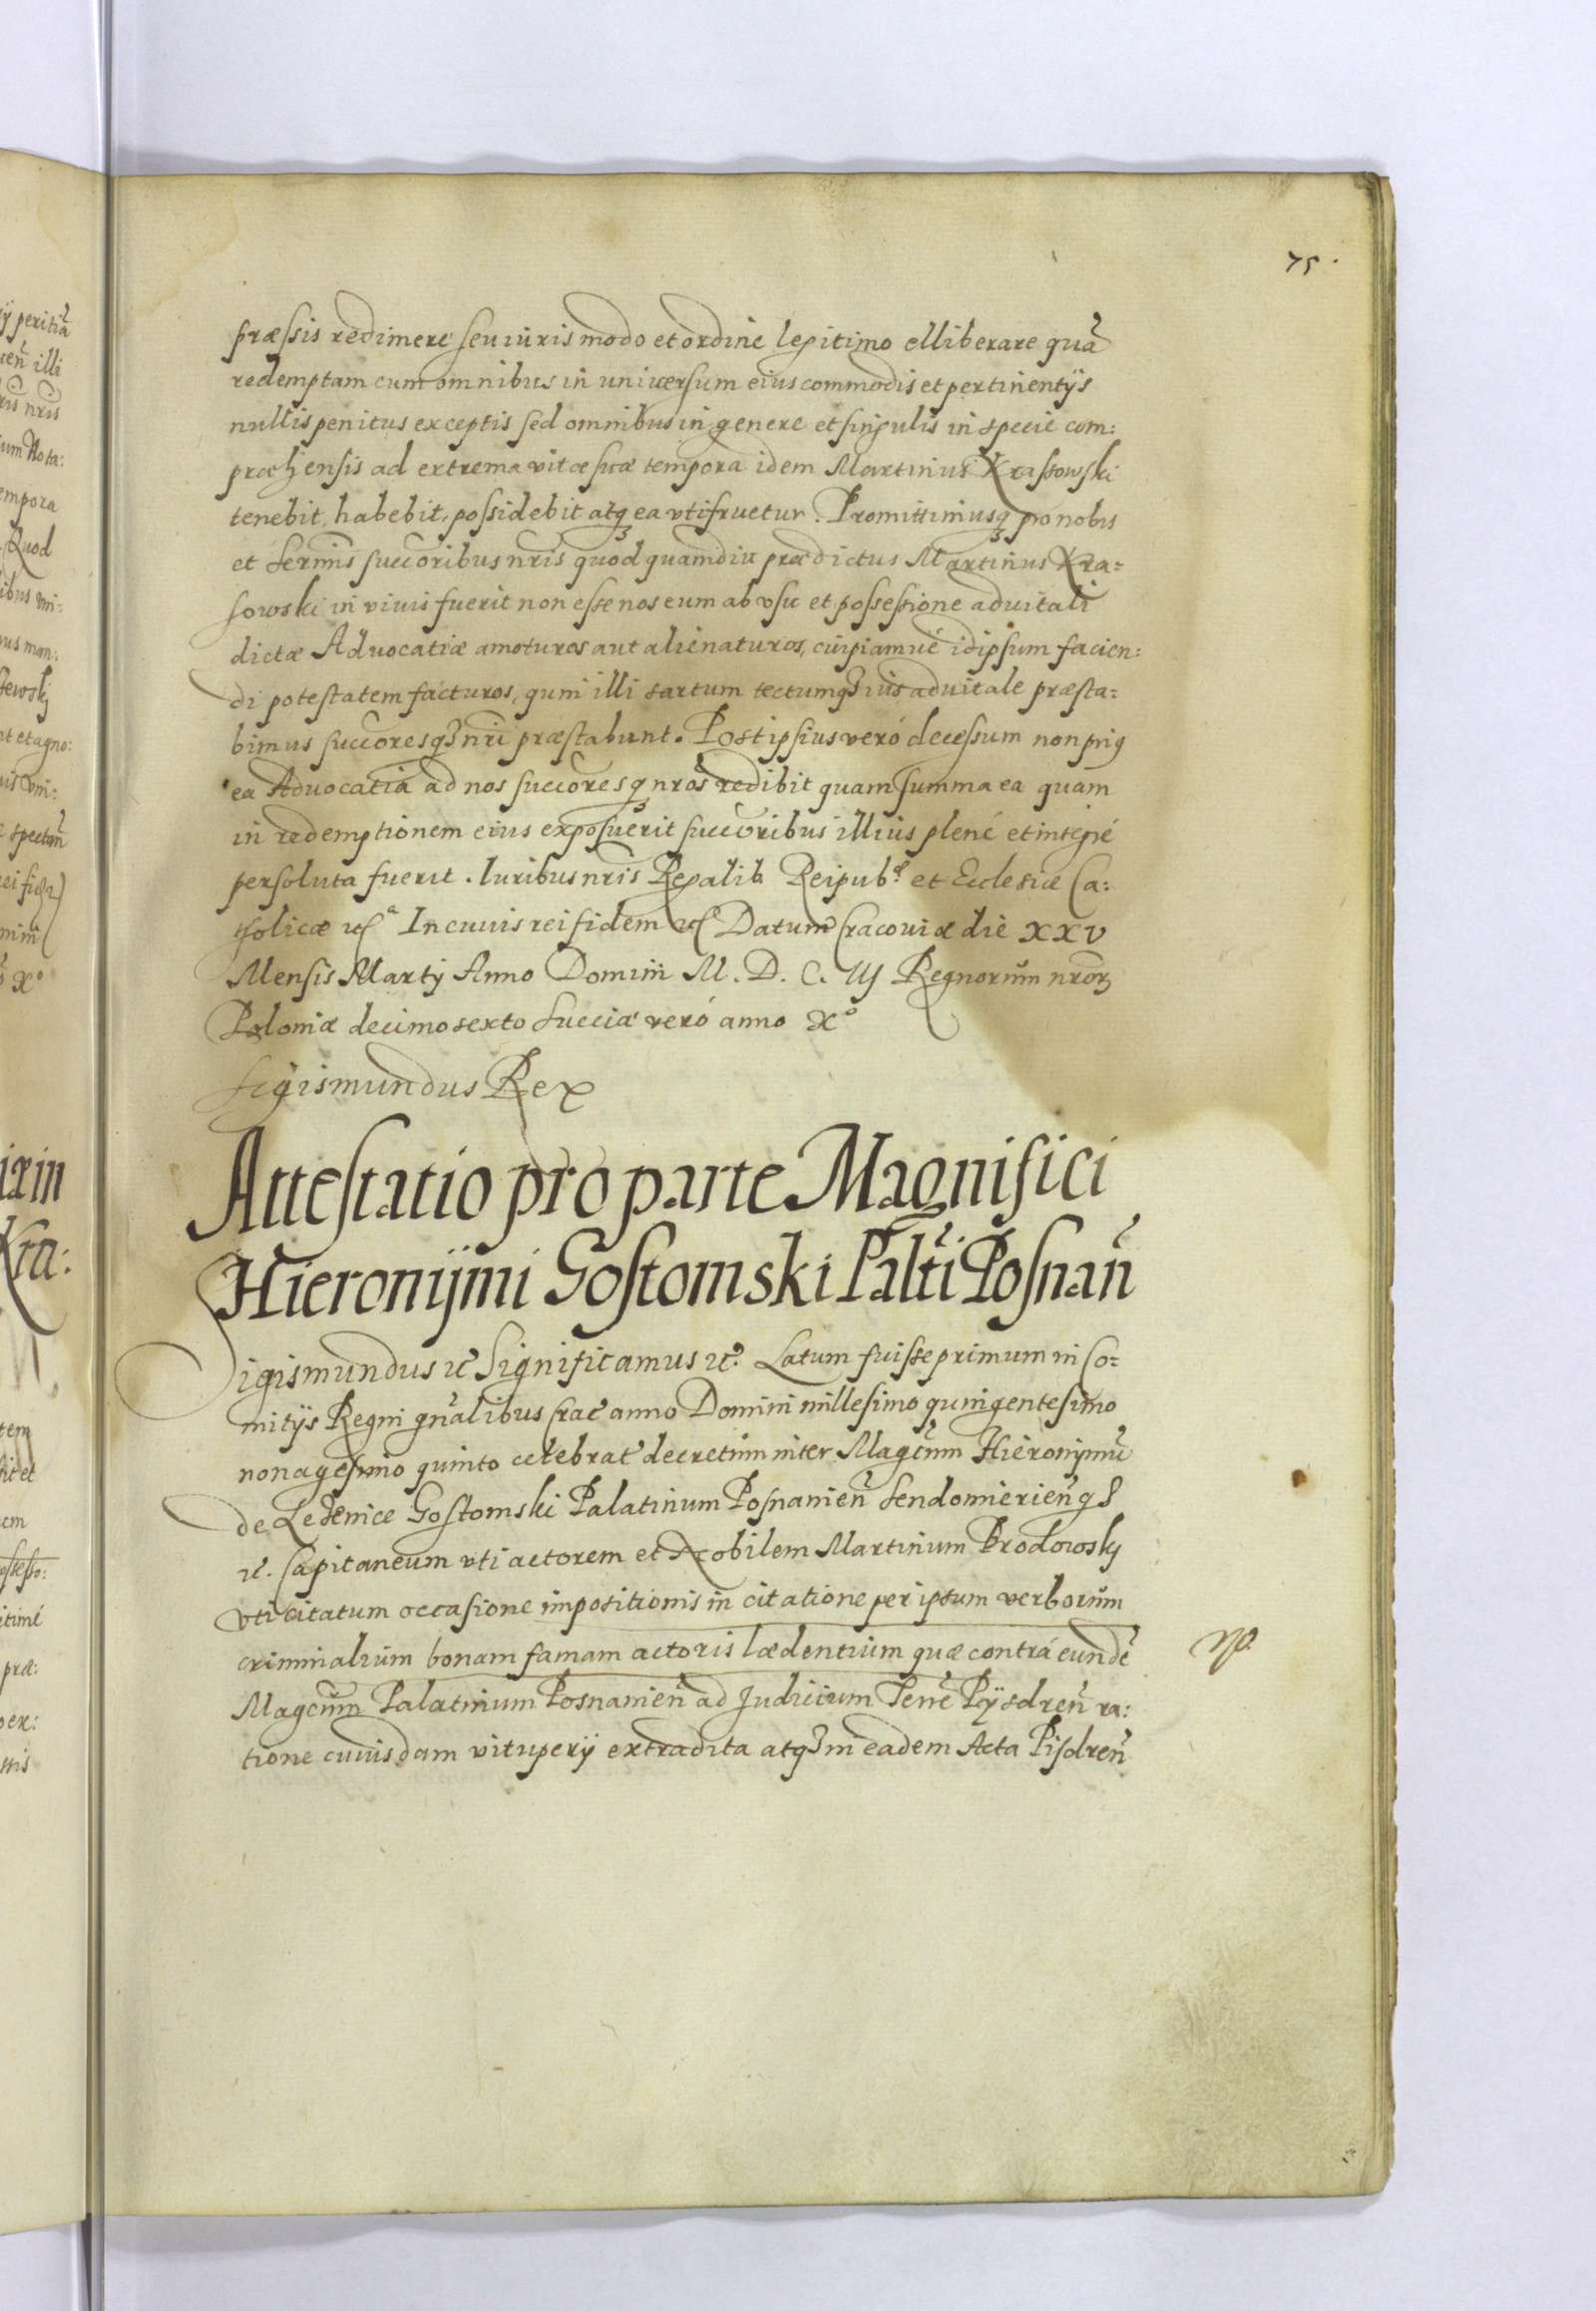 75.
præssis redimere seu iuris modo et ordine legitimo elliberare quã
redemptam cum omnibus in universum eius commodis et pertinentÿs
nullis penitus exceptis sed omnibus in genere et singulis in specie com:
præhensis ad extrema vitæ suæ tempora idem Martinus Krassowski
tenebit, habebit, possidebit atq ea vtifruetur. Promittimusq pro nobis
et Sermis succoribus nris quod quamdiu prædictus Martinus Kra=
sowski in viuis fuerit non esse nos eum ab vsu et possessione aduitali
dictæ Aduocatiæ amoturos aut alienaturos, cuipiamué idipsum facien:
di potestatem facturos, quin illi sartum tectumq ius aduitale præsta=
bimus succoresq nri præstabunt. Post ipsius veró decessum non priq
ea Aduocatia ad nos succoresq nros redibit quam summa ea quam
in redemptionem eius exposuerit succoribus illius plené et integré
persoluta fuerit. Iuribus nris Regalib Reipub. et Ecclesiæ Ca:
tholicæ etc In cuius rei fidem etc Datum Cracouiæ die XXV
Mensis Martÿ Anno Domini M. D. C. IIJ Regnorum nror
Poloniæ decimosexto Sueciæ veró anno Xº
Sigismundus Rex
Attestatio pro parte Magnifici
Hieronijmi Gostomski Palti Posnan
Sigismundus etc Significamus etc. Latum fuisse primum in Co=
mitÿs Regni gnalibus Crac anno Domini millesimo quingentesimo
nonagesimo quinto celebrat decretum inter Magcum Hieronymũ
de Lezenice Gostomski Palatinum Posnanien Sendomirienq
etc. Capitaneum vti actorem et Nobilem Martinum Brodowskÿ
vti citatum occasione impositionis in citatione per ipsum verborum
criminalium bonam famam actoris lædentium quæ contrá eundẽ
Magcum Palatinum Posnanien ad Judicium Pÿsdren ra:
tione cuiusdam vituperÿ extradita atq in eadem Acta Pisdren